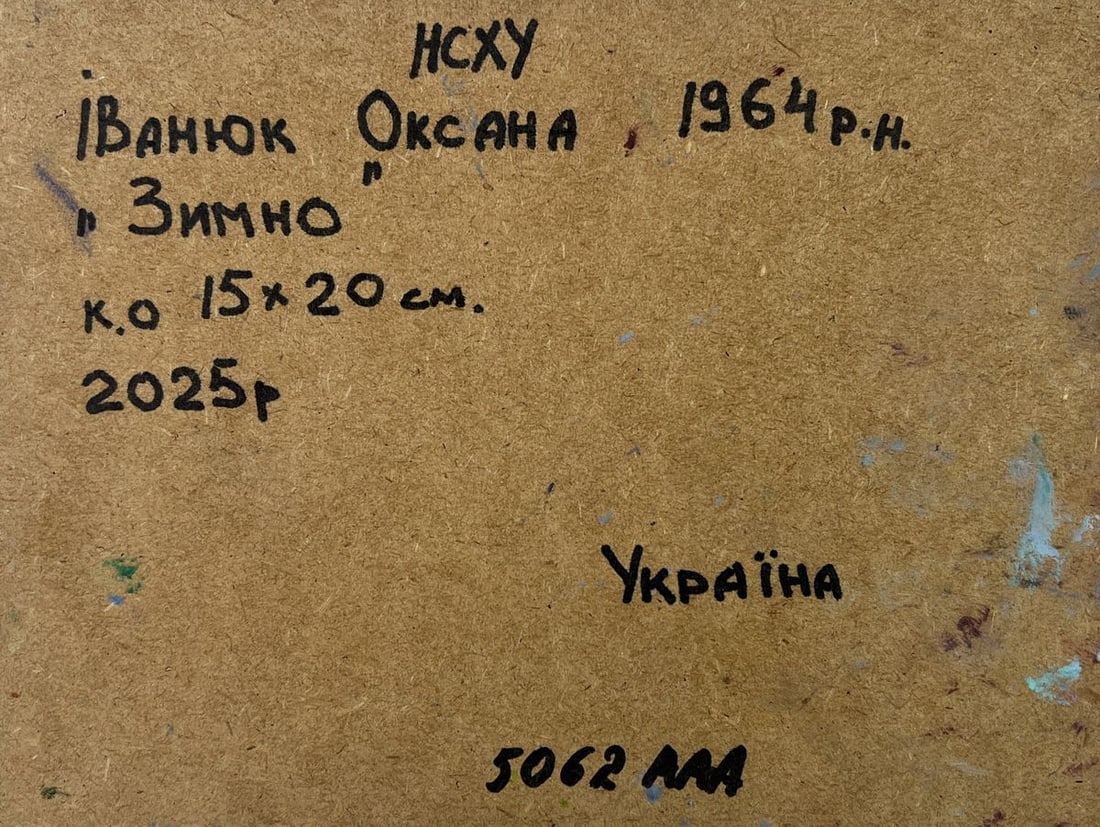 НСХУ
Іванюк Оксана 1964 р.н.
"Зимно"
к.о 15х20 см.
2025р
Україна
5062 ААА